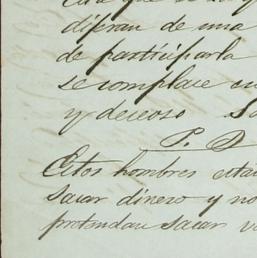 difieran de una
de participarla
se complace en
y deceoso
P. D
Estos hombres estan
sacar dinero y no
pretendan sacar